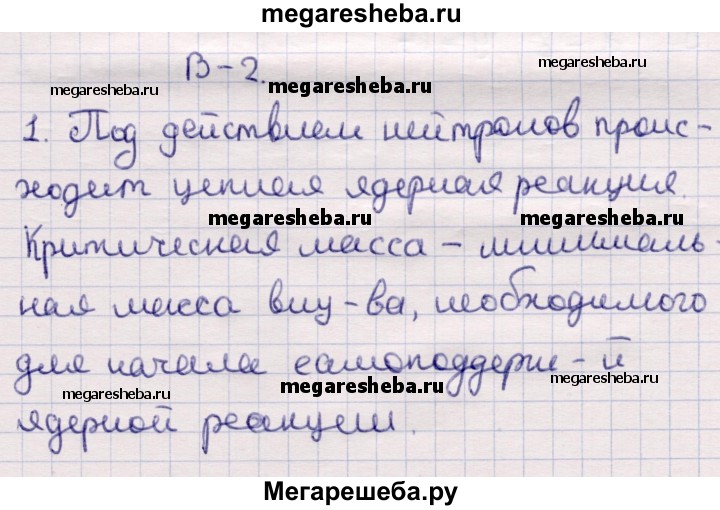 megaresheba.ru
В-2.
megaresheba.ru
megaresheba.ru
megaresheba.ru
1. Под действием нейтронов проис-
ходит цепная ядерная реакция.
megaresheba.ru
megaresheba.ru
Критическая масса – минималь-
ная масса вещ-ва, необходимого
для начала самоподдерж-й
megaresheba.ru
megaresheba.ru
megaresheba.ru
ядерной реакции.
Мегарешеба.ру